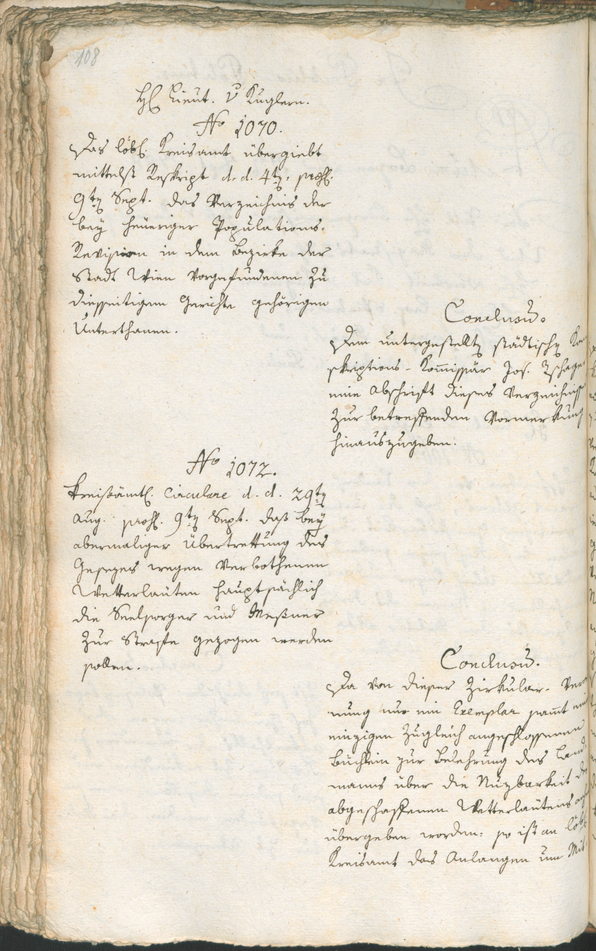 108
H̄ Lieut. v Kuglern.
No 1070.
Das löbl. Kreisamt übergiebt
mittelst Reskript d. d. 4ten, præs.
9ten Sept. das Verzeichnis der
bey heüeriger Populations-
Revision in dem Bezirke der
Stadt Wien vorgefundenen zu
diesseitigem Gerichte gehörigen
Unterthanen.
Conclusū.
Dem untergestellten städtischen
skriptions-Kommissär Jos.
eine Abschrift dieses Verzeichniß
zur betreffenden Vormerkung
hinauszugeben.
No 1072.
Kreisämtl. Circulare d. d. 29ten
Aug. præs. 9ten Sept. daß bey
abermaliger Übertrettung des
Gesezes wegen verbothenen
Wetterlauten hauptsächlich
die Seelsorger und Meßner
zur Strafe gezogen werden
sollen.
Conclusū.
Da von dieser Zirkular-
nung nur ein Exemplar sammt
einzigen zugleich angeschlossenen
Büchlein zur Belehrung des Land
manns über die Nuzbarkeit
abgeschaffenen Wetterlautens
übergeben worden: so ist an löbl.
Kreisamt das Anlangen um